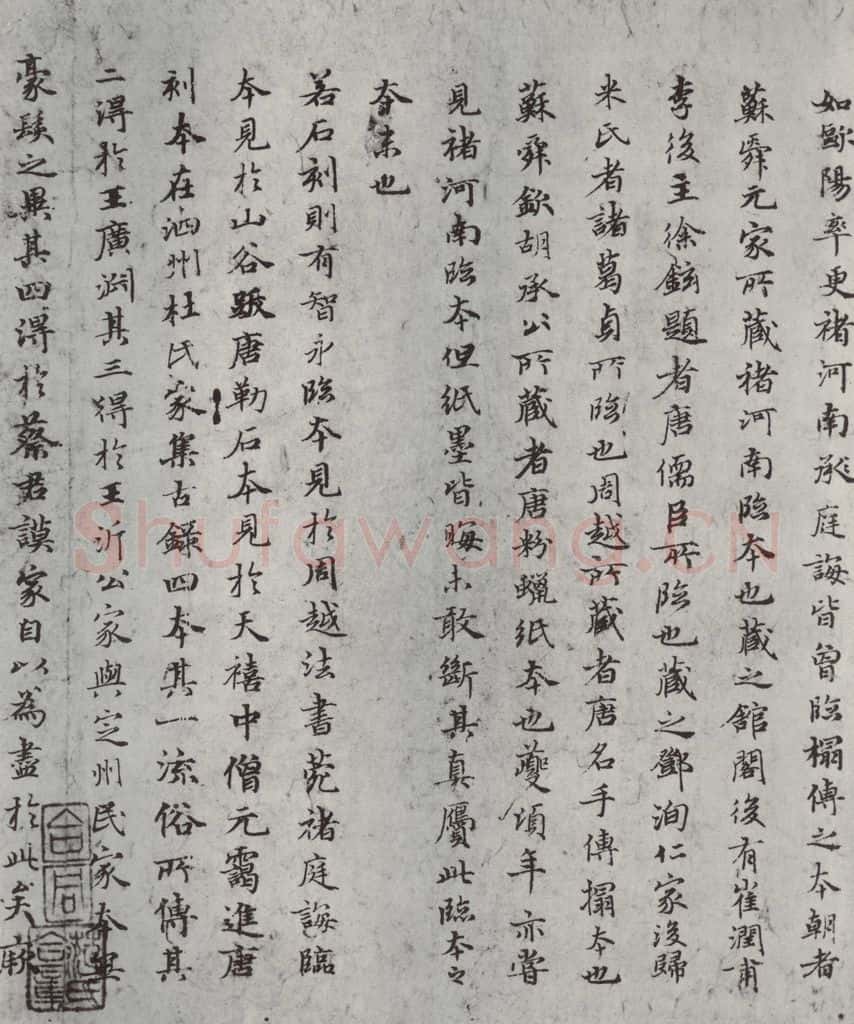 如歐陽率更褚河南泝庭誨皆曾臨搨傳之本朝者
蘇舜元家所藏褚河南臨本也藏之館閣後有崔潤甫
李後主徐鉉題者唐儒臣所臨也藏之鄧洵仁家後歸
米氏者諸葛貞所臨也周越所藏者唐名手傳搨本也
蘇舜欽胡承公所藏者唐粉蠟紙本也夔頃年亦嘗
見褚河南臨本但紙墨皆晦未敢斷其真贗此臨本之
夲末也
若石刻則有智永臨本見於周越法書苑褚庭誨臨
本見於山谷跋唐勒石本見於天禧中僧元靄進唐
刻本在泗州杜氏家集古錄四本其一流俗所傳其
二得於王廣淵其三得於王沂公家與定州民家本無
豪髮之異其四得於蔡君謨家自以為盡於此矣
Shufawang.CN